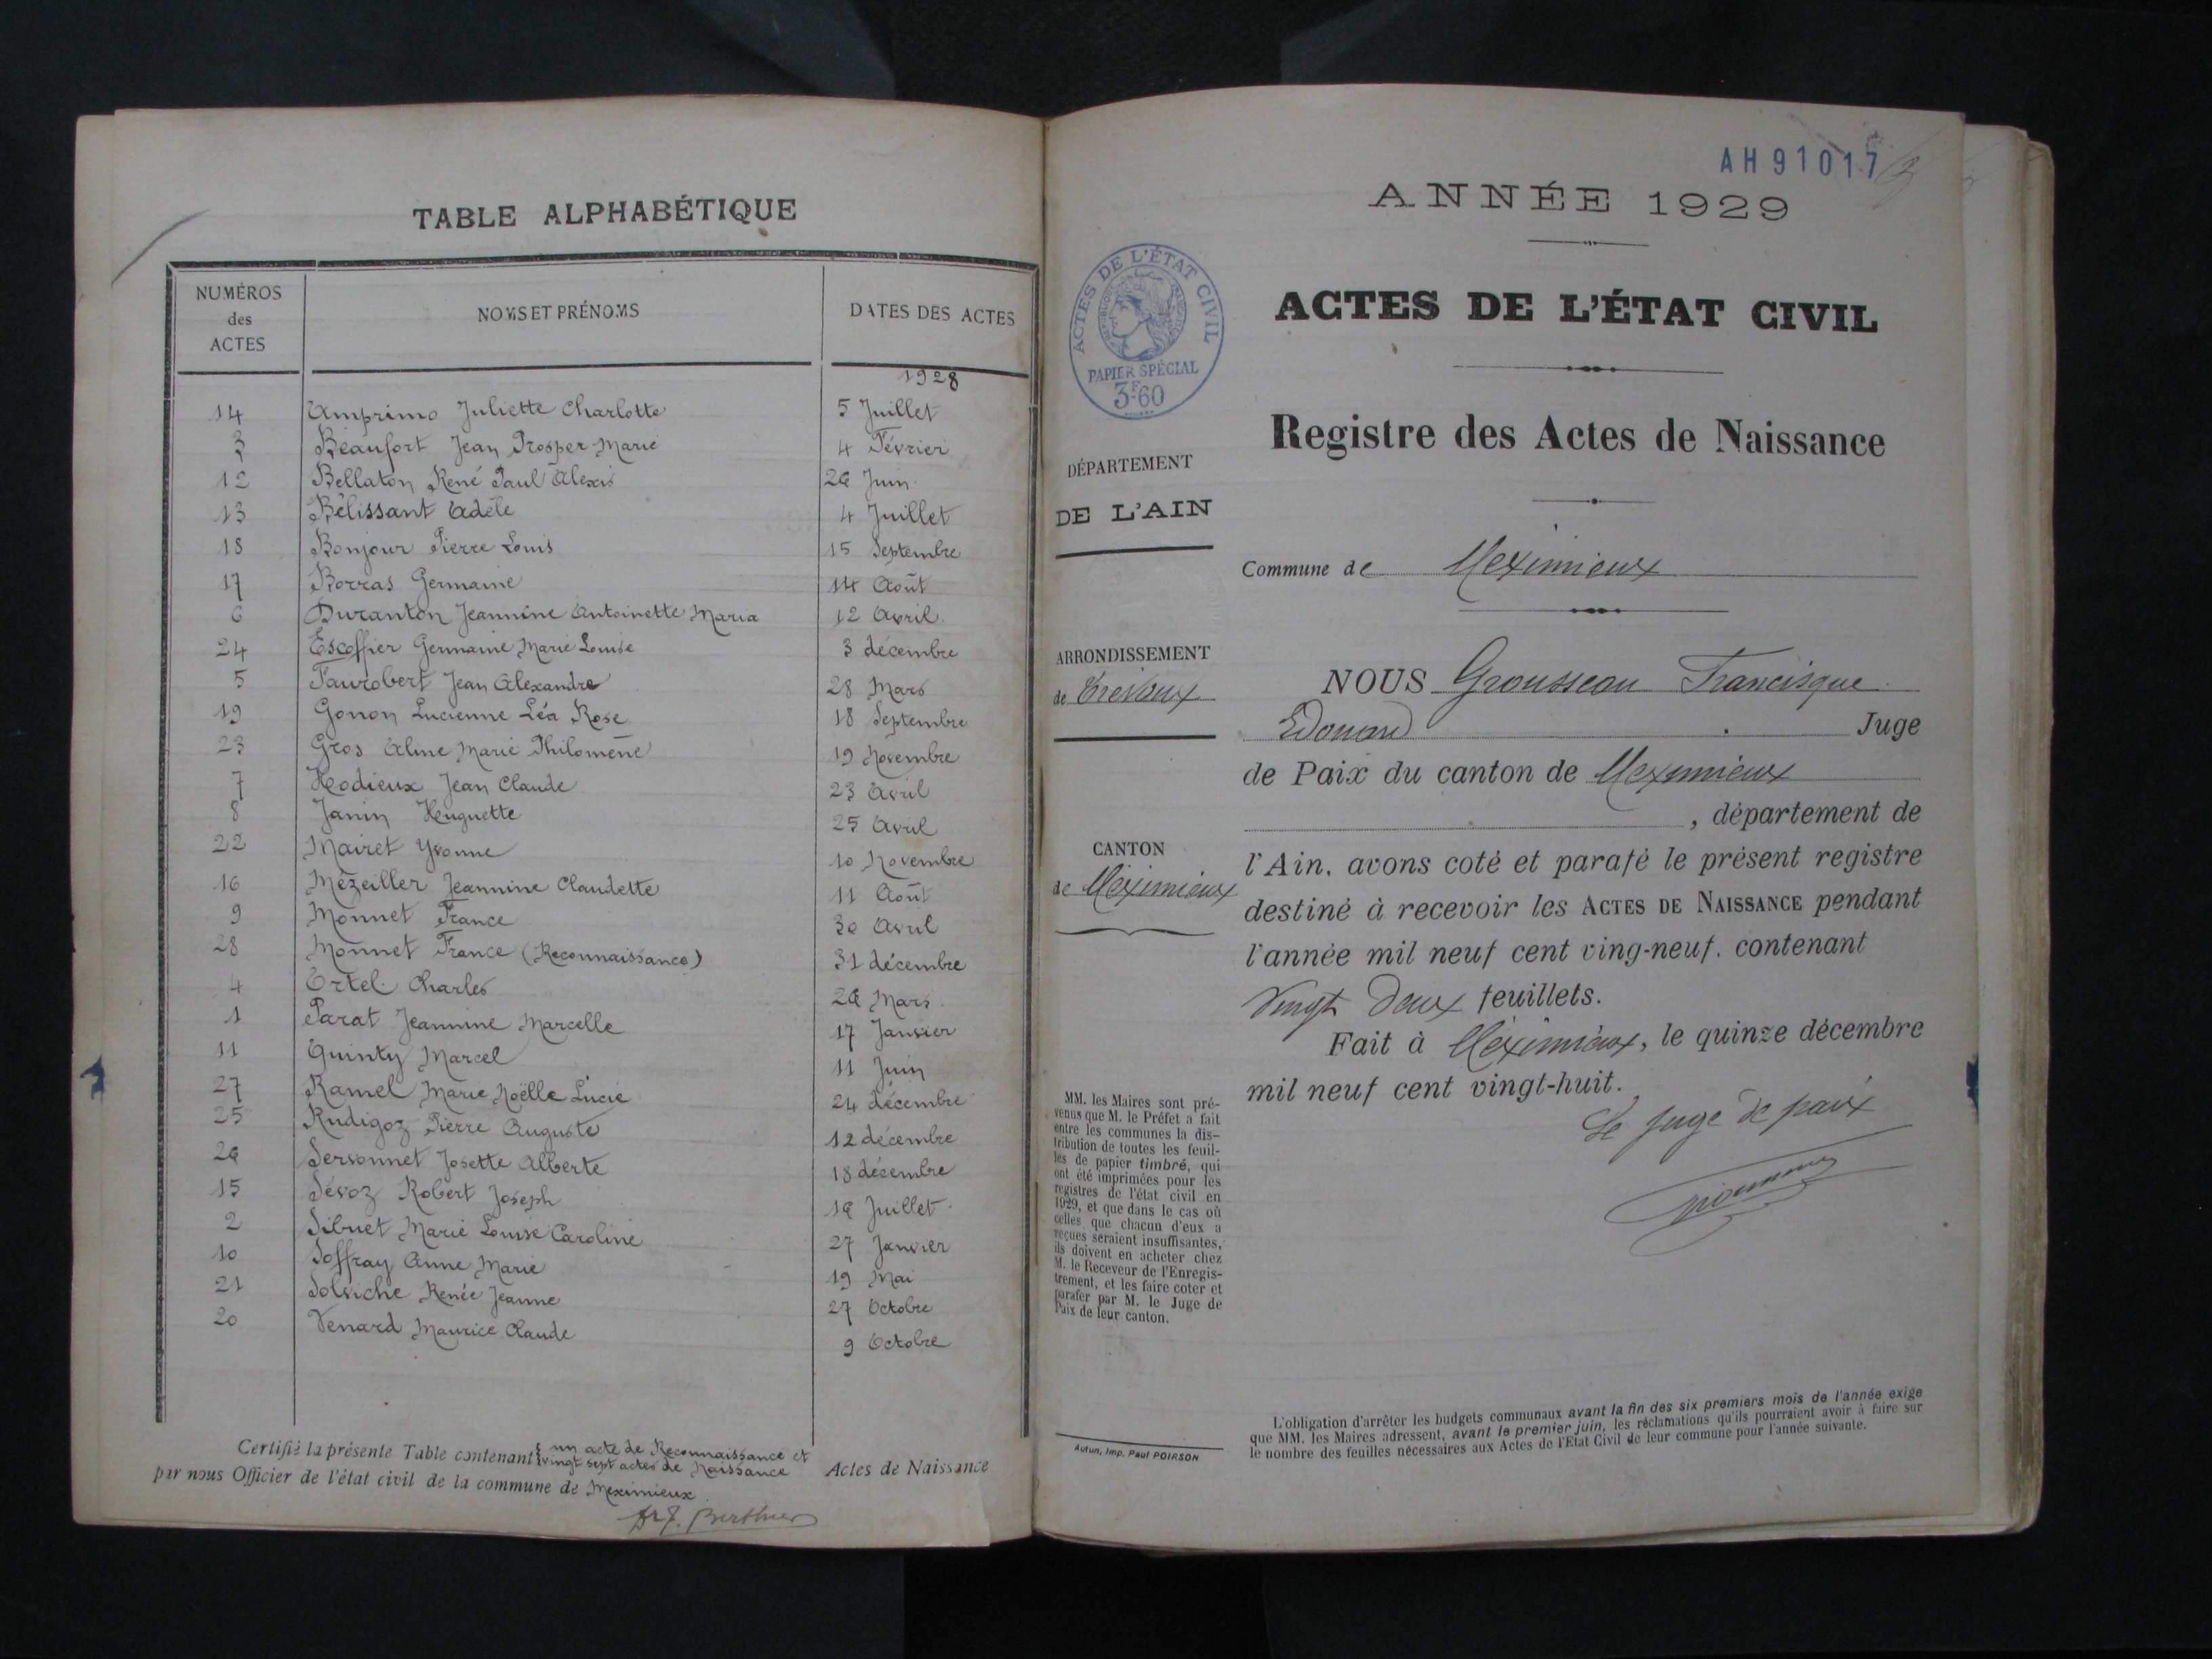 TABLE ALPHABÉTIQUE
NUMÉROS des ACTES NOMS ET PRÉNOMS DATES DES ACTES
1928
14 Amprimo Juliette Charlotte 5 Juillet
3 Beaufort Jean Prosper Marie 4 Février
12 Bellaton René Paul Alexis 26 Juin
13 Bélissant Adèle 4 Juillet
18 Bonjour Pierre Louis 15 Septembre
17 Borras Germaine 14 Août
6 Duranton Jeannine Antoinette Maria 12 Avril
24 Escoffier Germaine Marie Louise 3 décembre
5 Faurobert Jean Alexandre 28 Mars
19 Gonon Lucienne Léa Rose 18 Septembre
23 Gros Aline Marie Philomène 19 Novembre
7 Hodieux Jean Claude 23 Avril
8 Janin Huguette 25 Avril
22 Mairet Yvonne 10 Novembre
16 Mézeiller Jeannine Claudette 11 Août
9 Monnet France 30 Avril
28 Monnet France (Reconnaissance) 31 décembre
4 Ortel Charles 26 Mars
1 Parat Jeannine Marcelle 17 Janvier
11 Quinty Marcel 11 Juin
27 Ramel Marie Noëlle Lucie 24 décembre
25 Rudigoz Pierre Auguste 12 décembre
26 Sersonnet Josette Alberte 18 décembre
15 Sévoz Robert Joseph 16 Juillet
2 Sibuet Marie Louise Caroline 27 Janvier
10 Soffray Anne Marie 19 Mai
21 Solviche Renée Jeanne 27 Octobre
20 Venard Maurice Claude 9 Octobre
Certifié la présente Table contenant un acte de Reconnaissance et
vingt sept actes de Naissance Actes de Naissance
par nous Officier de l'état civil de la commune de Meximieux
Berthier
AH91017
ANNÉE 1929
ACTES DE L'ÉTAT CIVIL
PAPIER SPÉCIAL
3F60
ACTES DE L'ÉTAT CIVIL
Registre des Actes de Naissance
DÉPARTEMENT
DE L'AIN
Commune de Meximieux
ARRONDISSEMENT
de Trévoux
CANTON
de Meximieux
NOUS Grousseau Francisque
Edouard Juge
de Paix du canton de Meximieux
, département de
l'Ain, avons coté et parafé le présent registre
destiné à recevoir les ACTES DE NAISSANCE pendant
l'année mil neuf cent ving-neuf. contenant
Vingt Deux feuillets.
Fait à Meximieux, le quinze décembre
mil neuf cent vingt-huit.
Le Juge de paix
MM. les Maires sont pré-
venus que M. le Préfet a fait
entre les communes la dis-
tribution de toutes les feuil-
les de papier timbré, qui
ont été imprimées pour les
registres de l'état civil en
1929, et que dans le cas où
celles que chacun d'eux a
reçues seraient insuffisantes,
ils doivent en acheter chez
M. le Receveur de l'Enregis-
trement, et les faire coter et
parafer par M. le Juge de
Paix de leur canton.
Autun, Imp. Paul POIRSON
L'obligation d'arrêter les budgets communaux avant la fin des six premiers mois de l'année exige
que MM. les Maires adressent, avant le premier juin, les réclamations qu'ils pourraient avoir à faire sur
le nombre des feuilles nécessaires aux Actes de l'Etat Civil de leur commune pour l'année suivante.